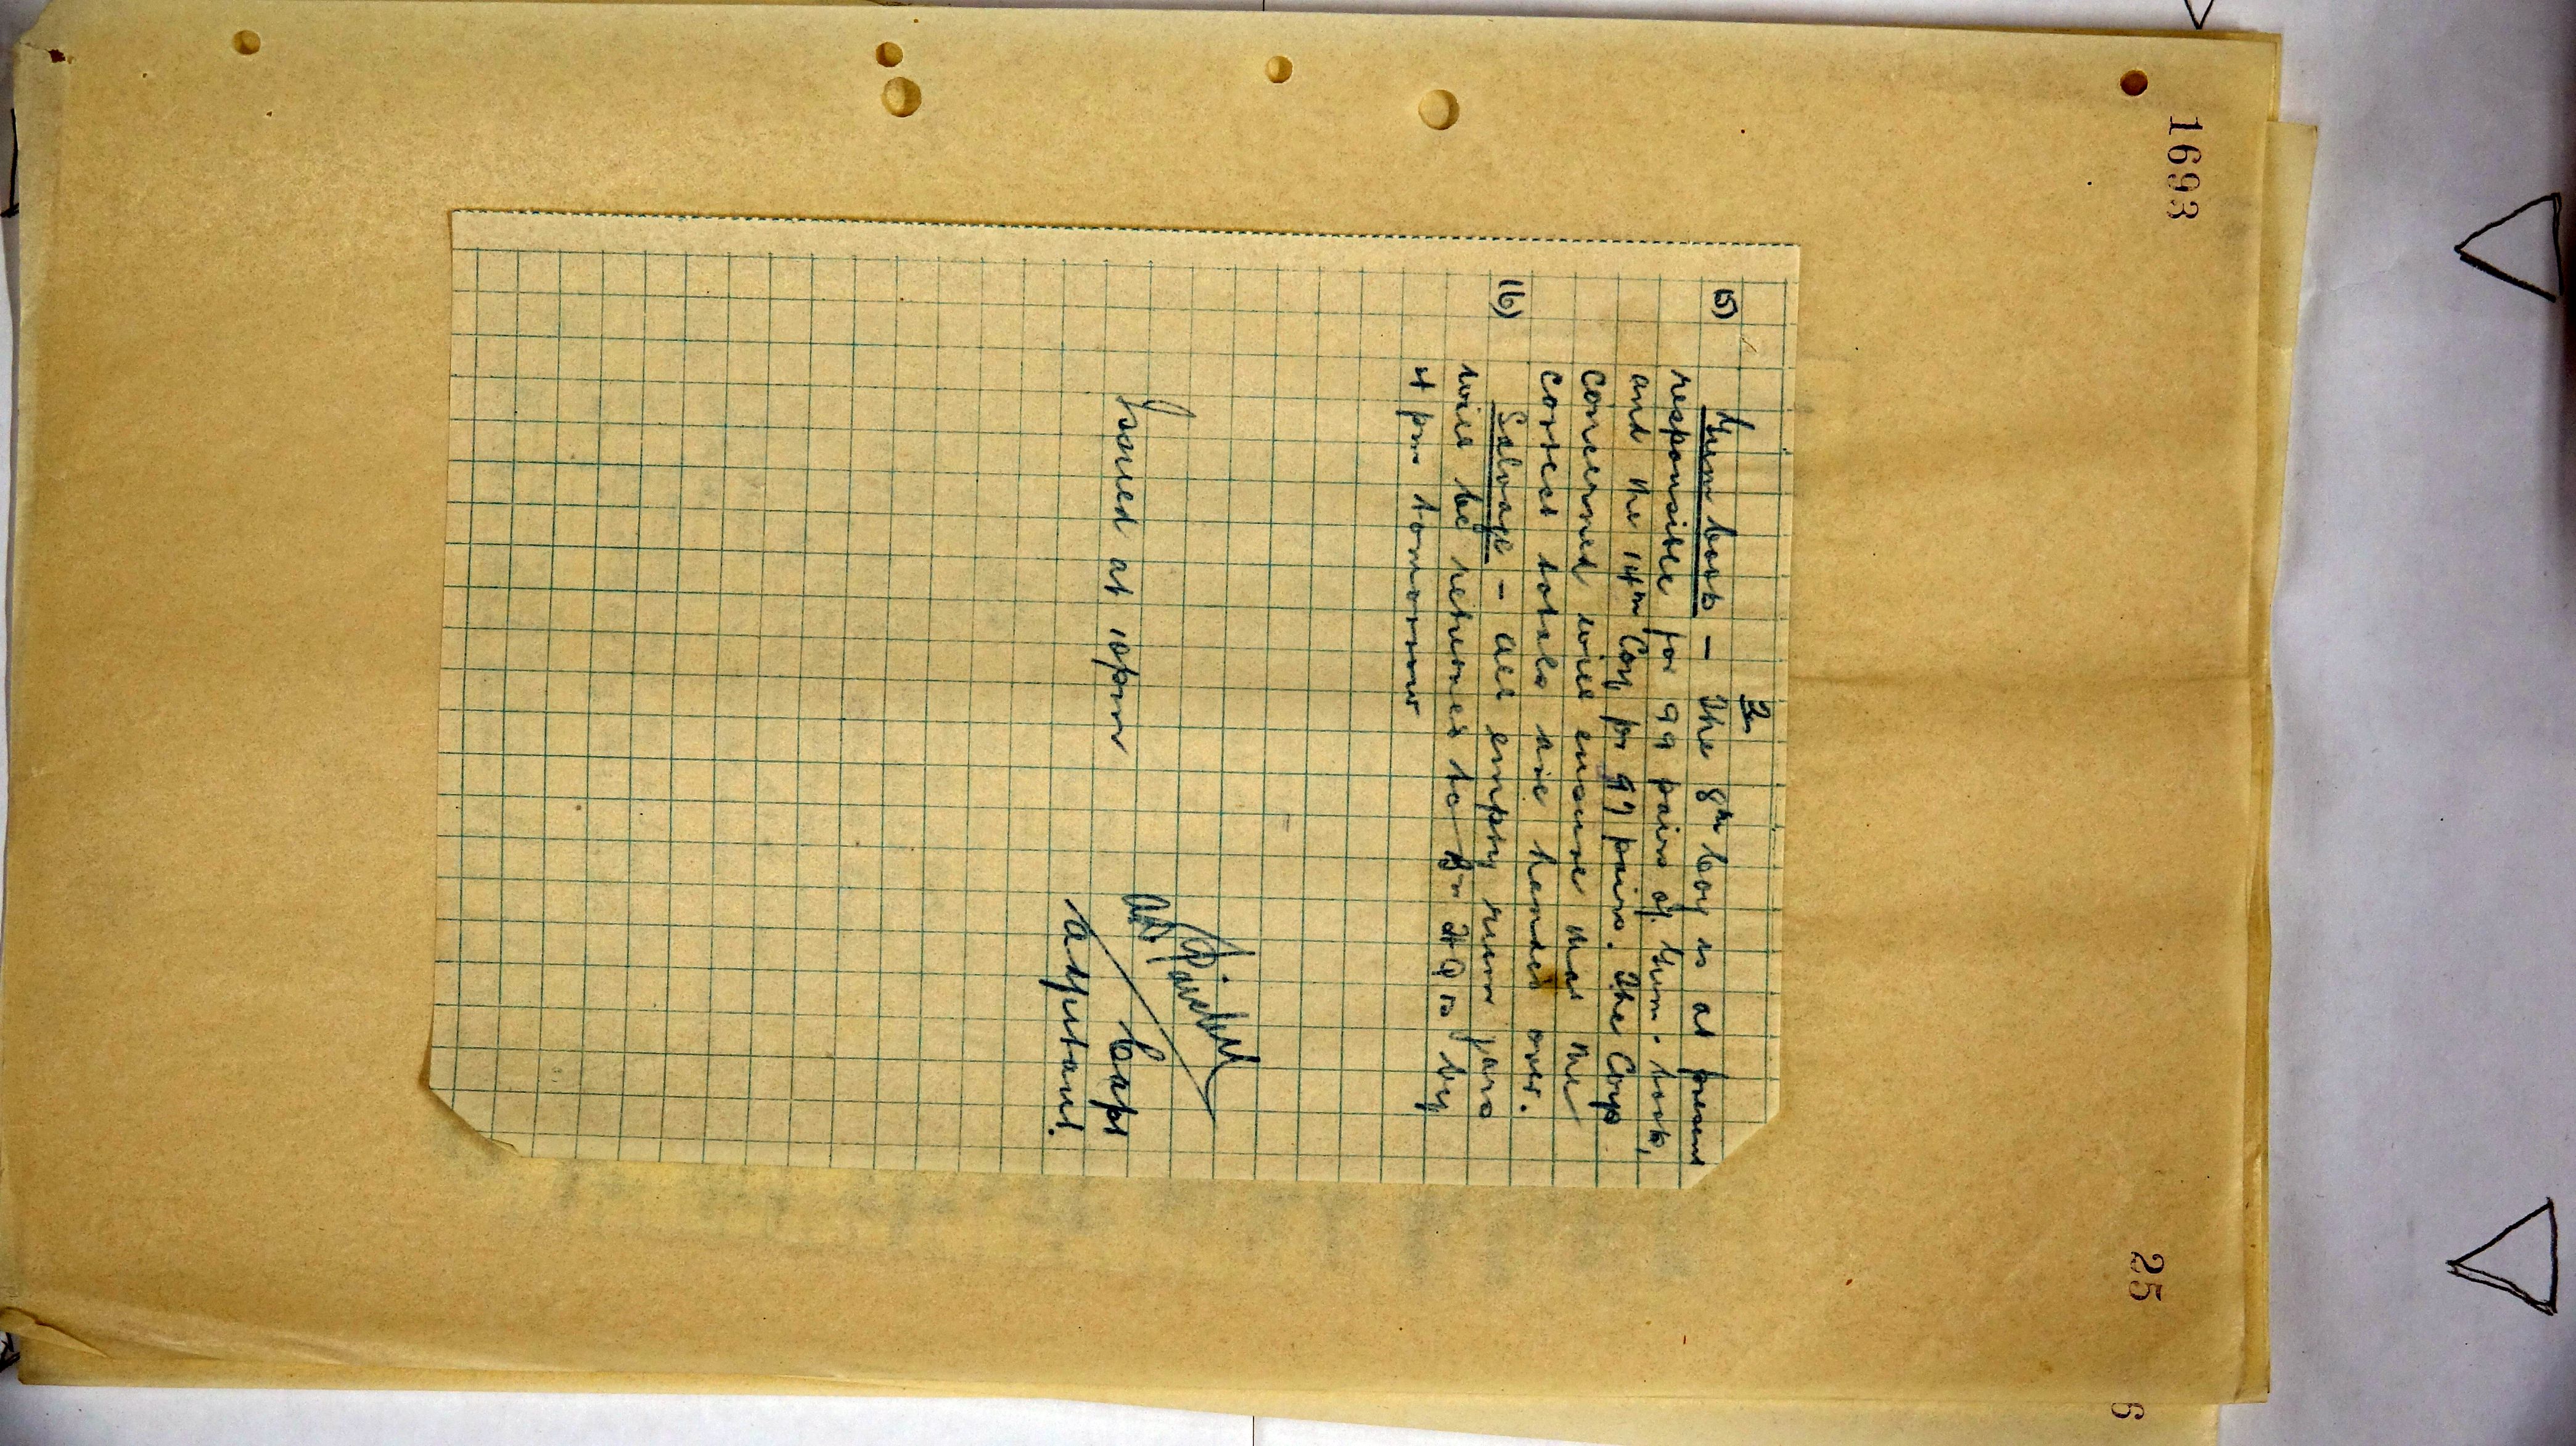 1693
25
6
3
15) Gum boots – The 8th Coy is at present
responsible for 99 pairs of Gum-boots,
and the 14th Coy for 97 pairs. The Coys
concerned will ensure that the
correct totals are handed over.
16) Salvage – All empty rum jars
will be returned to Bn HQrs by
4 pm tomorrow
Issued at 10pm
Capt
Adjutant.